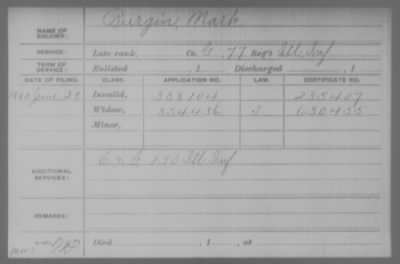 NAME OF SOLDIER: Burgin, Mark
SERVICE: Late rank, Co. G, 77 Reg't Ill. Inf
TERM OF SERVICE: Enlisted , 1 Discharged , 1
DATE OF FILING. CLASS. APPLICATION NO. LAW. CERTIFICATE NO.
1880 June 28 Invalid, 388104
Widow, 854436 630455
Minor,
ADDITIONAL SERVICES: 130 Ill Inf
REMARKS:
Died , 1 , at